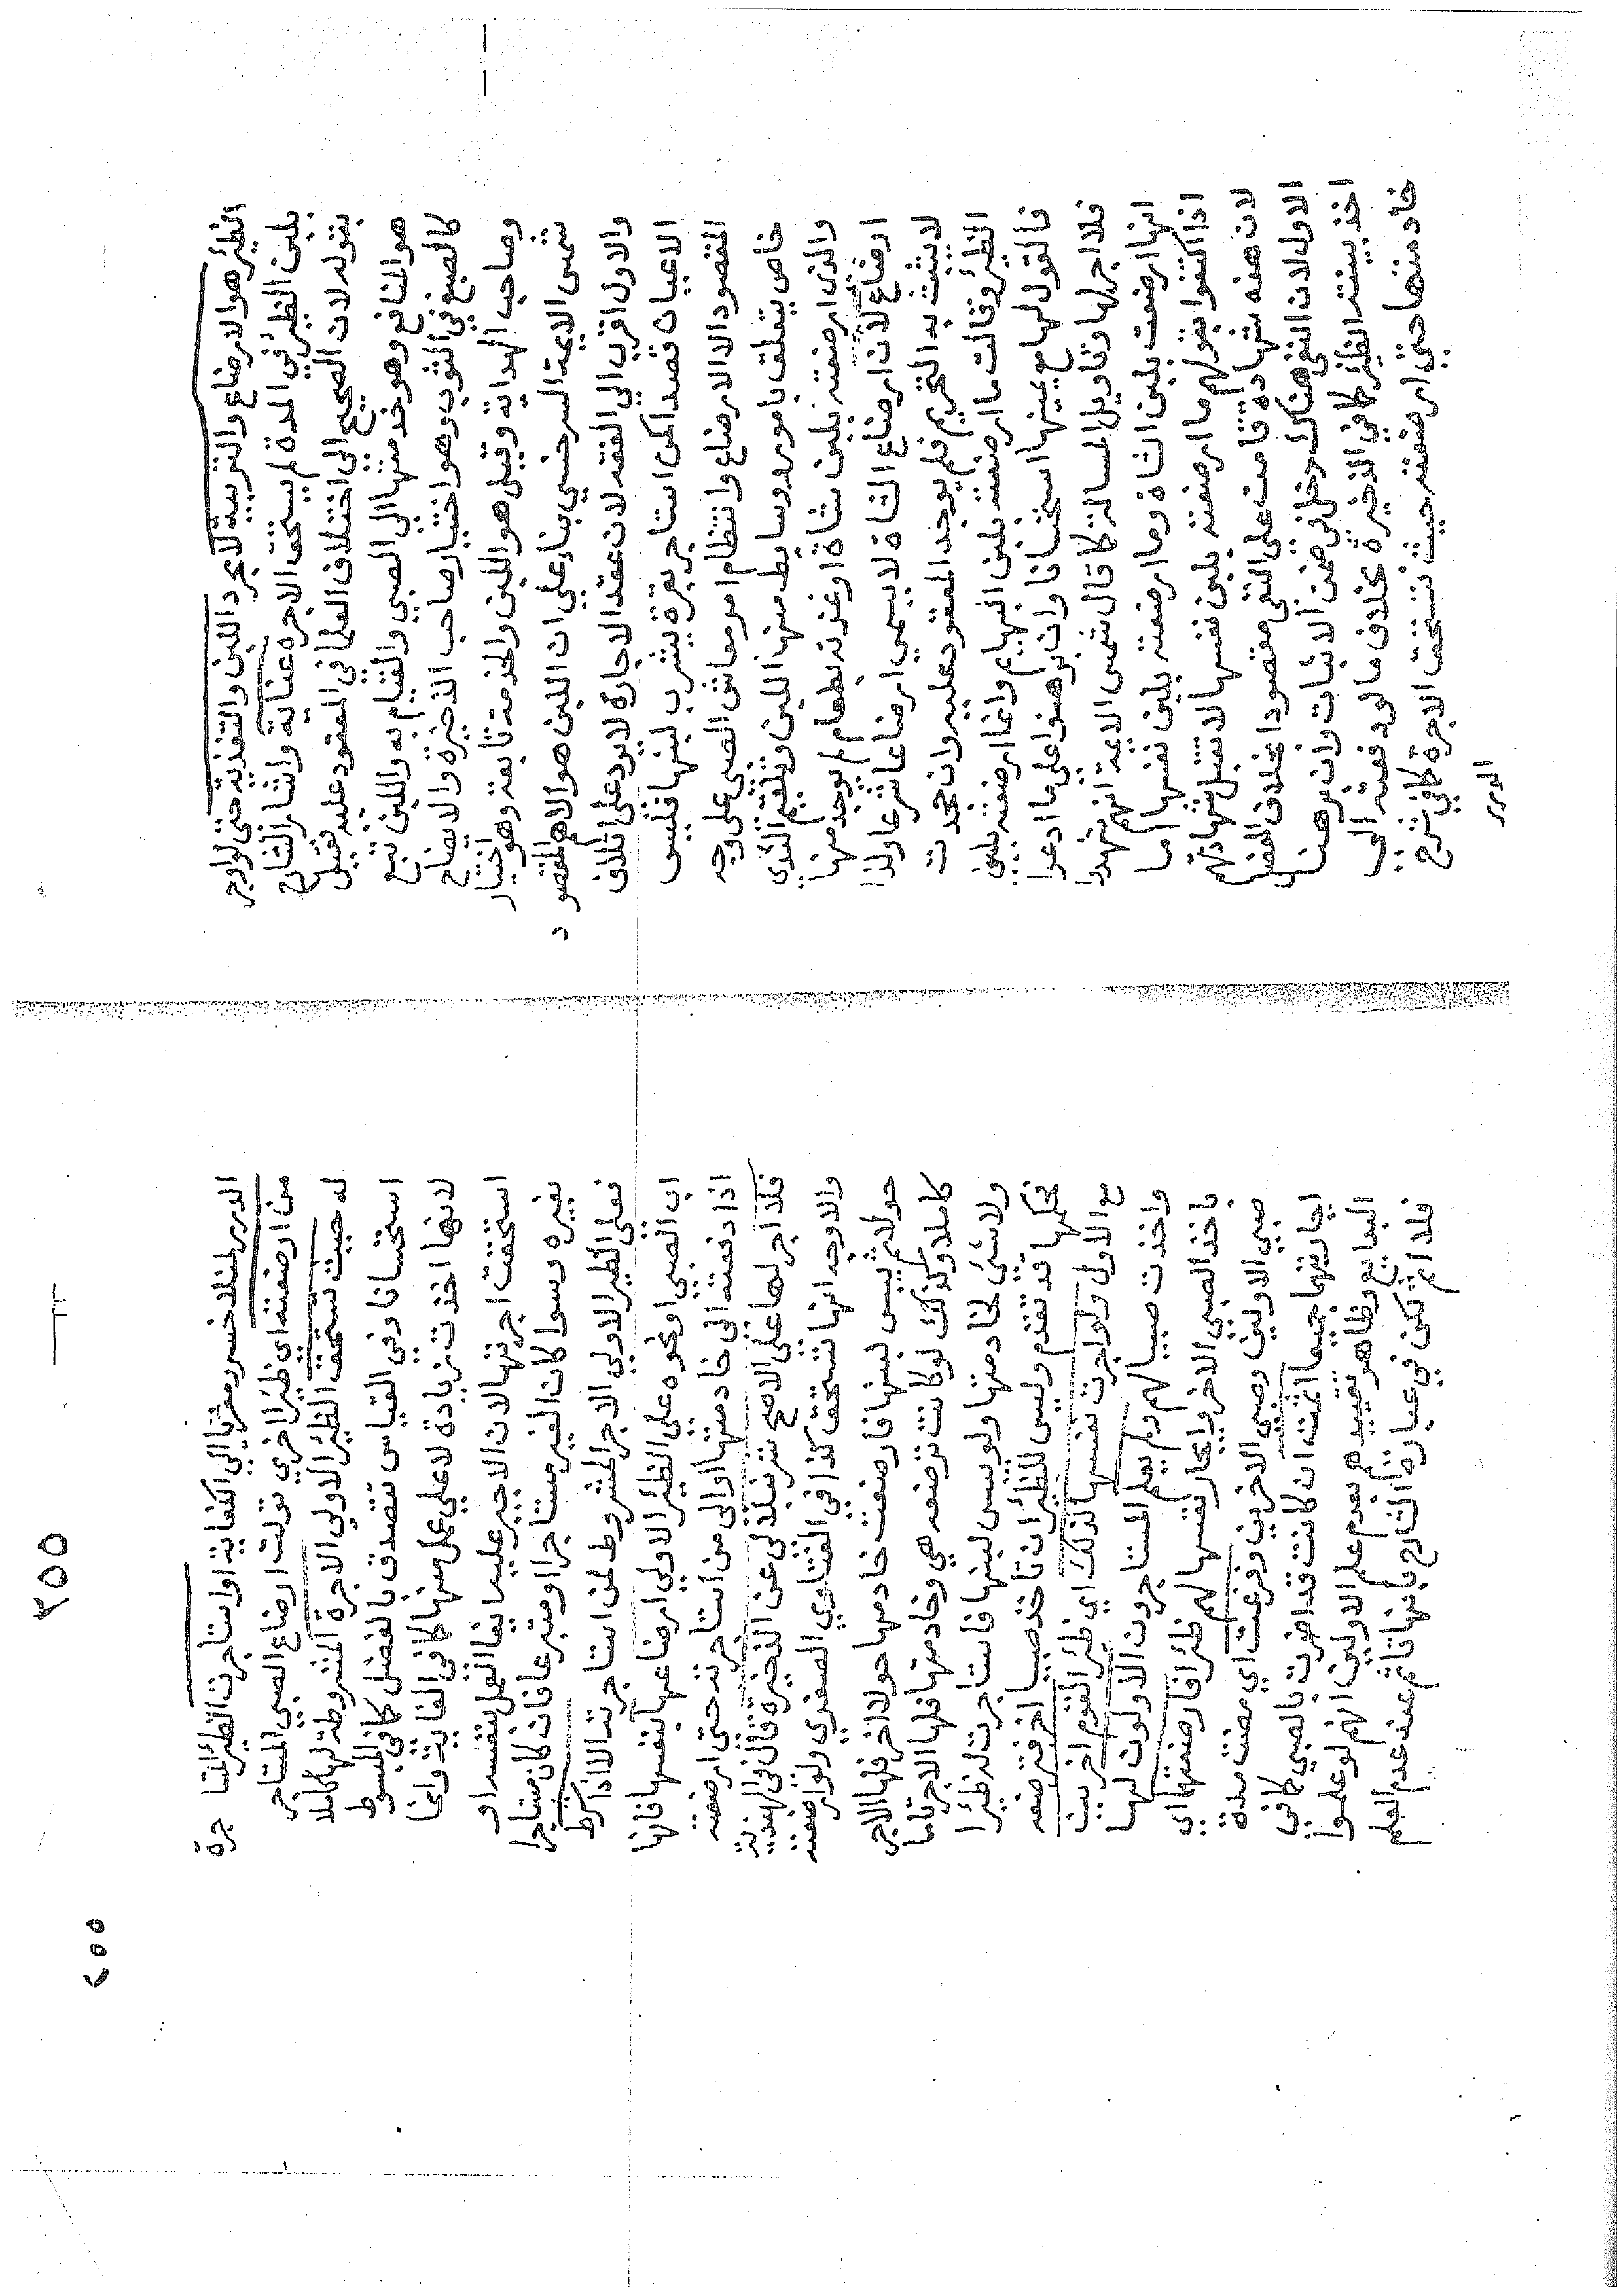 الظئر هو الارضاع والتربية لا مجرد اللبن والتغذية حتى لو اوجر
بلبن الظئر في المدة لم يستحق الاجرة عناية واشار الشارح
بقوله لان الصحيح الى اختلاف العلما في المعقود عليه فقيل
هو المنافع وهو خدمتها الى الصبي والقيام به واللبن تبع
كالصبغ في الثوب وهو اختيار صاحب الذخيرة والايضاح
وصاحب الهداية وقيل هو اللبن والخدمة تابعة وهو اختيار
شمس الايمة السرخسي بناء على ان اللبن هو الاهم المقصود
والاول اقرب الى الفقه لان عقد الاجارة لا يرد على اتلاف
الاعيان قصدا كمن استاجر بقرة يشرب لبنها فليس
المقصود الا الارضاع وانتظام امر معاش الصبي على وجه
خاص يتعلق بامور ووسايط منها اللبن وتلقيم الثدي
والذي ارضعته بلبن شاة او غذته بطعام لم يوجد منها
ارضاع لان ارضاع الشاة لا يسمى ارضاعا شرعا ولذا
لا يثبت به التحريم فلم يوجد المعقود عليه وان جحدت
الظئر وقالت ما ارضعته بلبن البهايم وانما ارضعته بلبني
فالقول لها مع يمينها استحسانا وان برهنوا على ما ادعوا
فلا اجر لها وتاويل المسالة كما قال شمس الايمة انهم شهدوا
انها ارضعت بلبن الشاة وما ارضعته بلبن نفسها اما
اذا اكتفوا بقولهم ما ارضعته بلبن نفسها لا تقبل شهادتهم
لان هذه شهادة قامت على النفي مقصودا بخلاف الفصل
الاول لان النفي هناك دخل في ضمن الاثبات وان برهنا
اخذ ببينة الظئر كما في الذخيرة بخلاف ما لو دفعته الى
خادمتها حتى ارضعته حيث تستحق الاجرة كما في شرح
الدرر
٢٥٥
٢٥٥
الدرر لمنلا خسرو معزيا الى الكفاية او استاجرت الظئر المستاجرة
من ارضعته اي ظئرا اخري تولت ارضاع الصبي المستاجر
له حيث تستحق الظئر الاولى الاجرة المشروطة لها كاملا
استحسانا وفي القياس تتصدق بالفضل كما في المبسوط
لانها اخذت زيادة لا على عمل منها كما في الغاية وانما
استحقت اجرتها لان الاجير عليه ايفا العمل بنفسه او
بغيره وسوا كان الغير مستاجرا او متبرعا فان كان مستاجرا
فعلى الظئر الاولى الاجر المشروط لمن استاجرته الا اذا شرط
اب الصبي او نحوه على الظئر الاولى ارضاعها بنفسها فانها
اذا دفعته الى خادمتها او الى من استاجرته حتى ارضعته
فلا اجر لها على الاصح شرنبلالي عن الذخيرة قال في الهندية
والاوجه انها تستحق كذا في الفتاوي الصغري ولو ارضعته
حولا ثم يبس لبنها فارضعت خادمها حولا اخر فلها الاجر
كاملا وكذلك لو كانت ترضعه هي وخادمتها فلها الاجر تاما
ولا شئ لخادمتها ولو يبس لبنها فاستاجرت له ظئرا
فحكمها قد تقدم وليس للظئر ان تاخذ صبيا اخر فترضعه
مع الاول ولو اجرت نفسها لذلك اي ظئر القوم اخرين
واخذت صبيا لهم ولم يعلم المستاجرون الاولون لها
باخذ الصبي الاخر وايجار نفسها لهم ظئرا فارضعتهما اي
صبي الاولين وصبي الاخرين وفرغت اي مضت مدة
ايجارتهما جميعا اثمت ان كانت قد اضرت بالصبي كما في
البدايع وظاهر تقييدهم بعدم علم الاولين انهم لو علموا
فلا اثم لكن في عبارة الشارح بانها تاثم عند عدم العلم